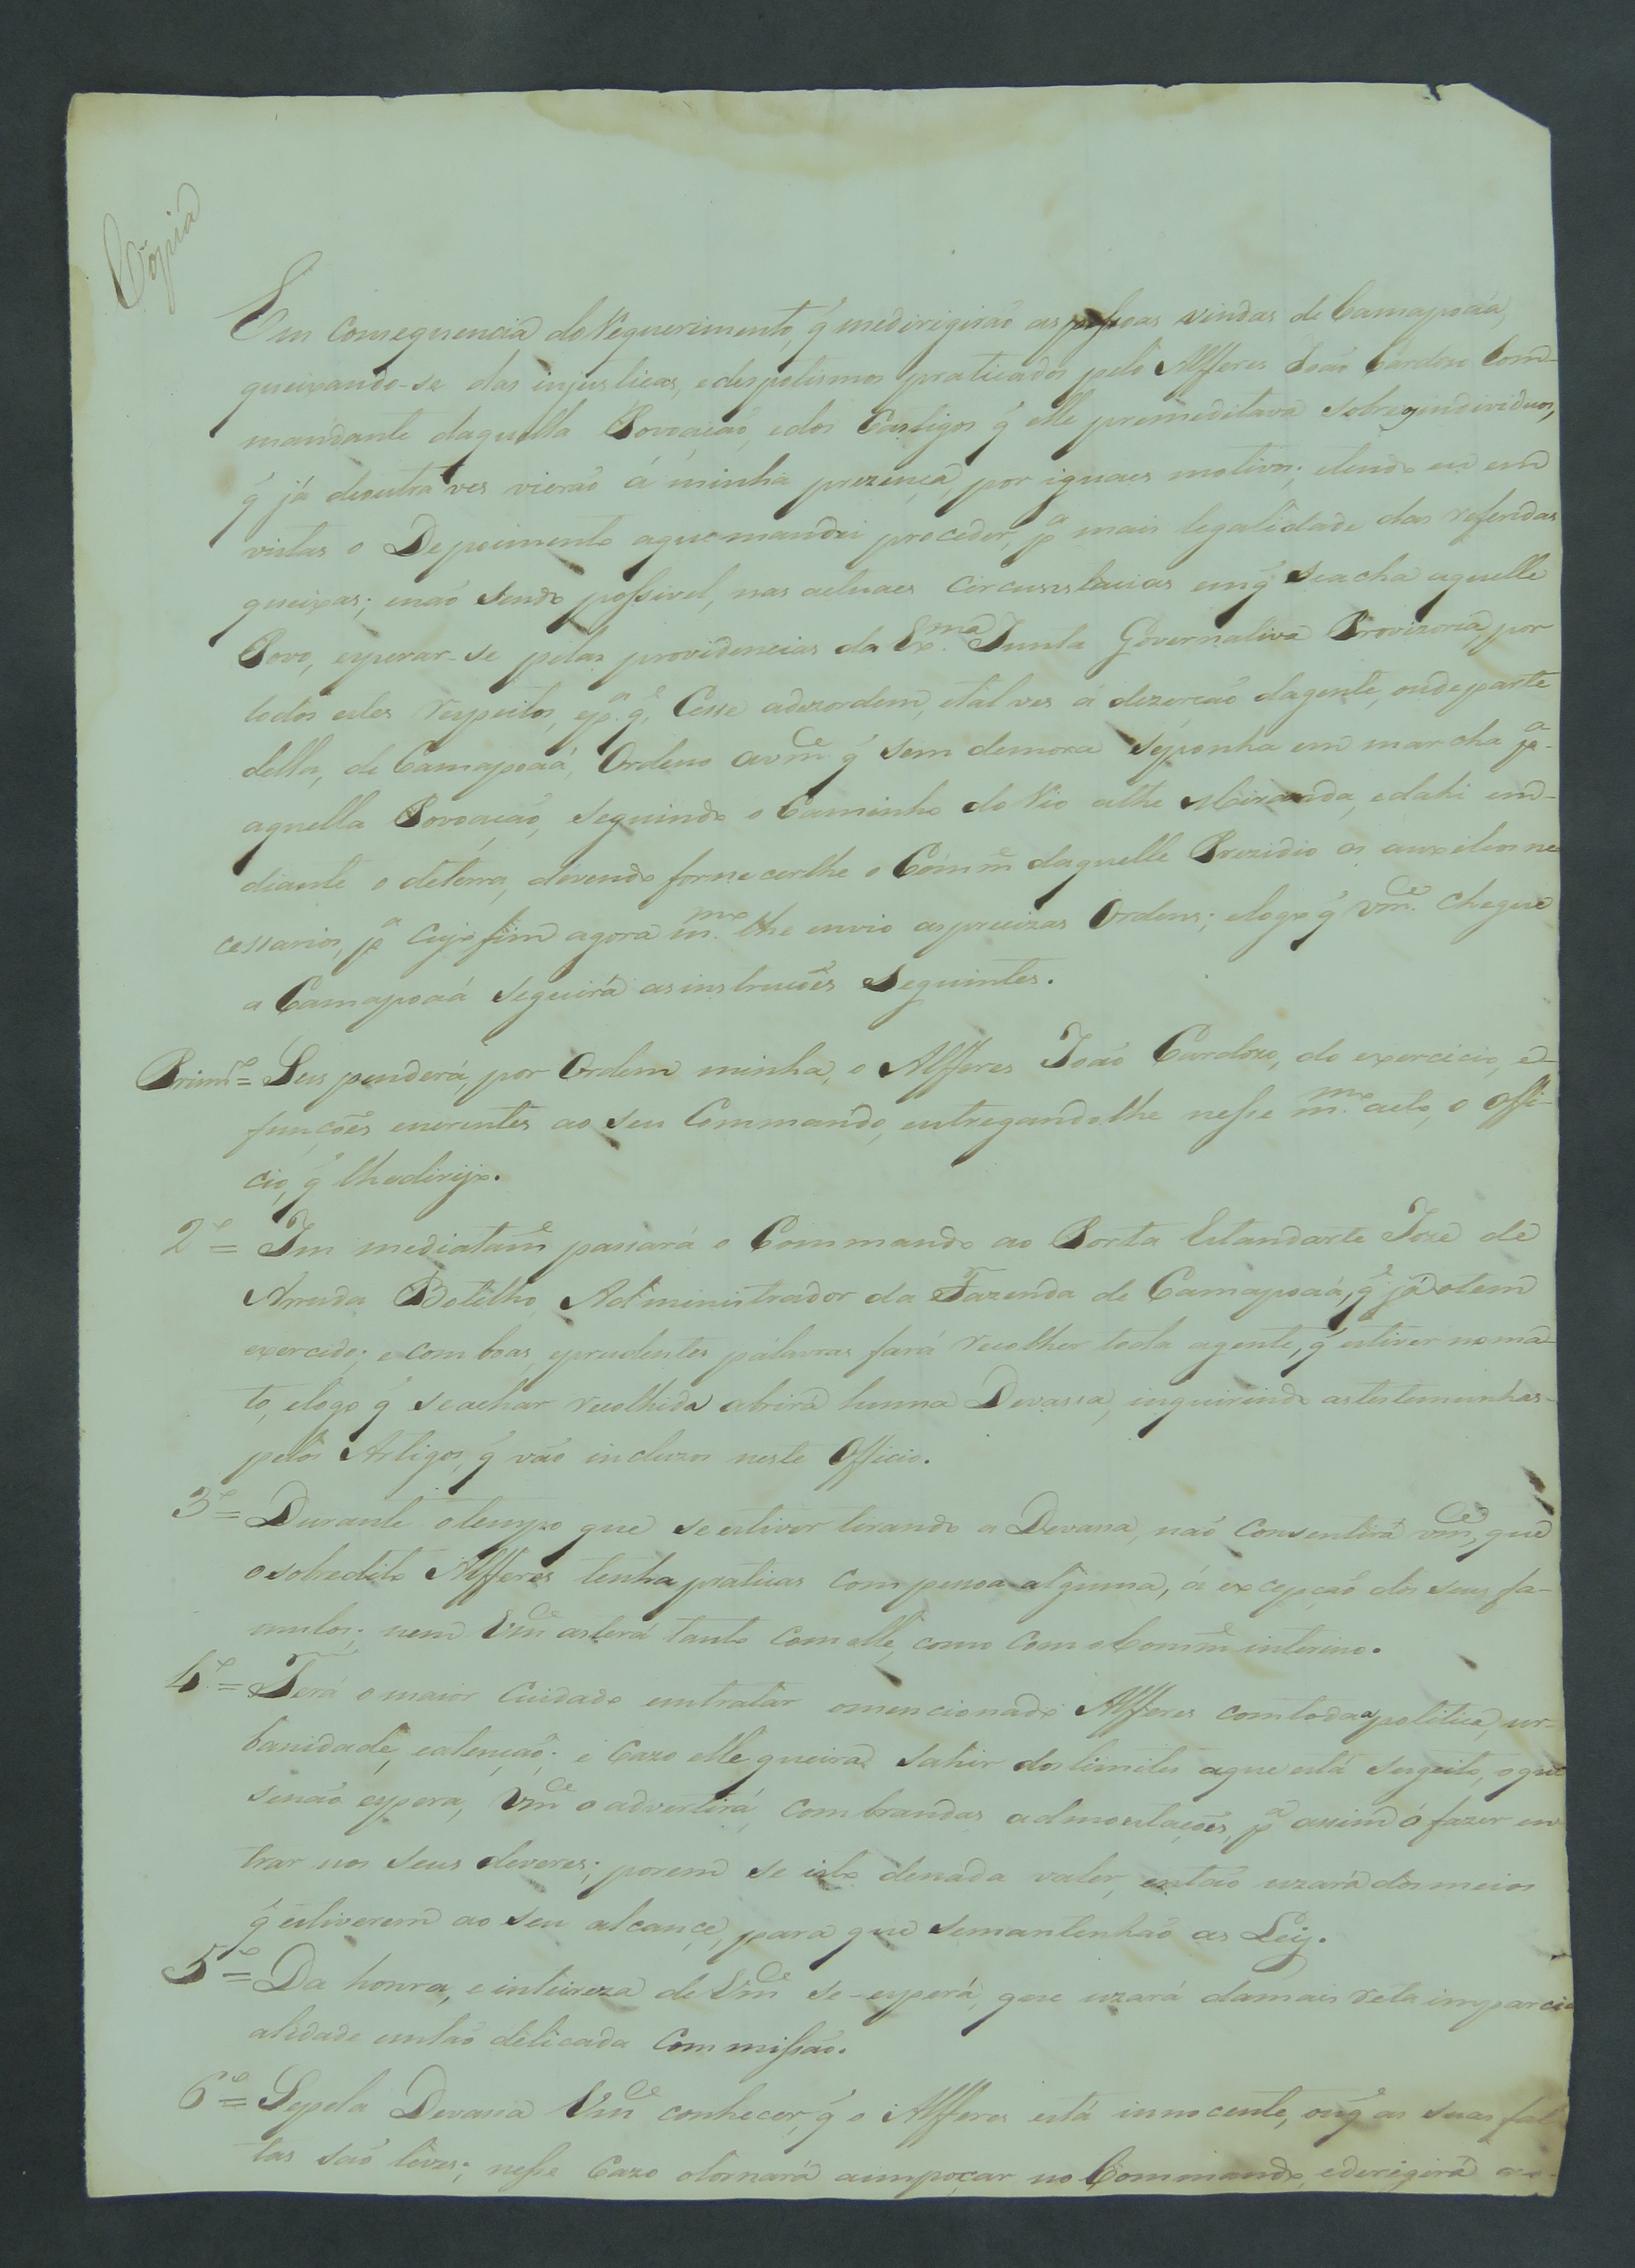 Cópia
Em consequencia do Requerimento, q̃ medirigirão as pessoas vindas de Camapoãa,
queixando-se das injusticas, edespotismos praticados pelo Alfferes João Cardozo Com-
mandante daquella Povoacaõ, edos Castigos q̃ elle premeditava sobre os individuos,
q̃ já deoutra ves vieraõ á minha prezença, por iguaes motivos; etendo eu em
vistas o Depoimento aque mandei proceder, pª mais legalidade das referidas
queixas; enaõ sendo possivel, nas actuaes circunstancias emq̃ seacha aquelle
Povo, esperar-se pelas providencias da Exma. Junta Governativa Provizoria, por
todos estes respeitos, epª. q̃, Cesse adezordem, etalves a dezercaõ dagente, oudeparte
della, de Camapoãá, Ordeno avmce q̃ sem demora seponha em marcha pª.
aquella Povoacaõ, seguindo o Caminho do Rio athe Miranda, edahi em-
diante o deterra, devendo fornecerlhe o Comme daquelle Prezidio os auxilios ne
cessarios, pª cujo fim agora m.mo lhe envio asprecizas Ordens; elogo q̃ Vmce. chegue
a Camapoãá seguirá asinstrucões seguintes.
Primro = Suspenderá, por Ordem minha, o Alfferes João Cardozo, do exercicio, e
funções enerentes ao seu Commando, entregandolhe nesse m.mo acto, o Offi-
cio, q̃ lhedirijo.
2º = Immediatame passará o Commando ao Porta Estandarte Joze de
Arruda Botelho, Administrador da Fazenda de Camapoãá, q̃ já otem
exercido; e com boas, eprudentes pálavras fará recolher toda agente, q̃ estiver noma-
to, elogo q̃ seachar recolhida abrirá huma Devassa, inquirindo astestemunhas-
pelos Artigos, q̃ vão incluzos neste Officio.
3º = Durante otempo que seestiver tirando a Devassa, naõ Consentirá vmce, que
osobredito Alfferes tenha praticas com pessoa alguma, á excepçaõ dos seus fa-
mulos; nem Vmce asterá tanto Com elle, como Com o Comme interino.
4º = Terá o maior Cuidado emtratar omencionado Alfferes comtoda a politica, ur-
banidade, eatençaõ; e Cazo elle queira sahir doslimites aque está sugeito, oque
senaõ espera, Vmce o advertirá, com brandas admoestações, pª assim o fazer en
trar nos seus deveres; porem se isto denada valer, então uzará dos meios
q̃ estiverem ao seu alcançe, para que semantenhaõ as Leiz.
5º = Da honra, e inteireza de Vmce se-esperá, que uzará damais reta imparci
alidade emtaõ delicada Commissaõ.
6º = Sepela Devassa Vmce conhecer, q̃ o Alfferes está innocente, ouq̃ as suas fal
tas saõ leves; nesse Cazo otornará aimpoçar no Commando, ederigirá ao-